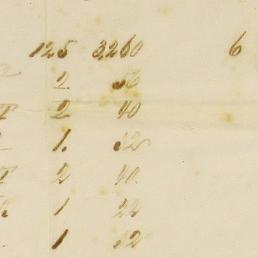 125 3,260 6
2 56
2 40
1. 32
2 40.
1 22
1 12